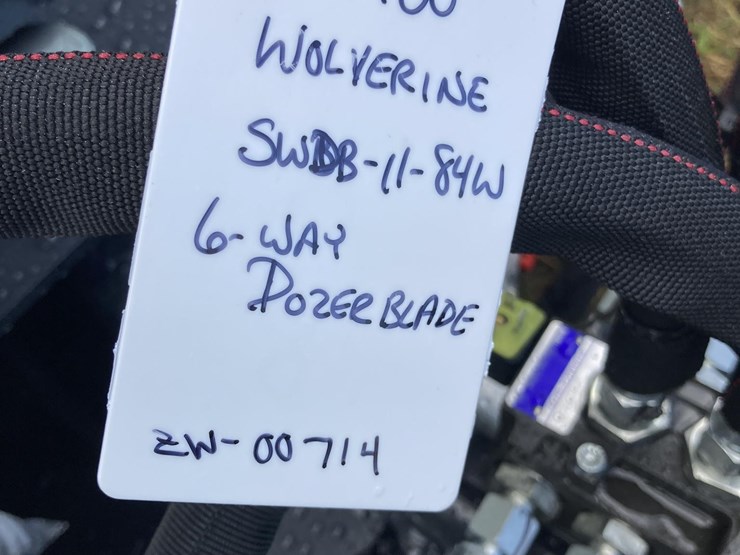 WOLVERINE
SWDB-11-84W
6-WAY
DOZER BLADE
ZW-00714